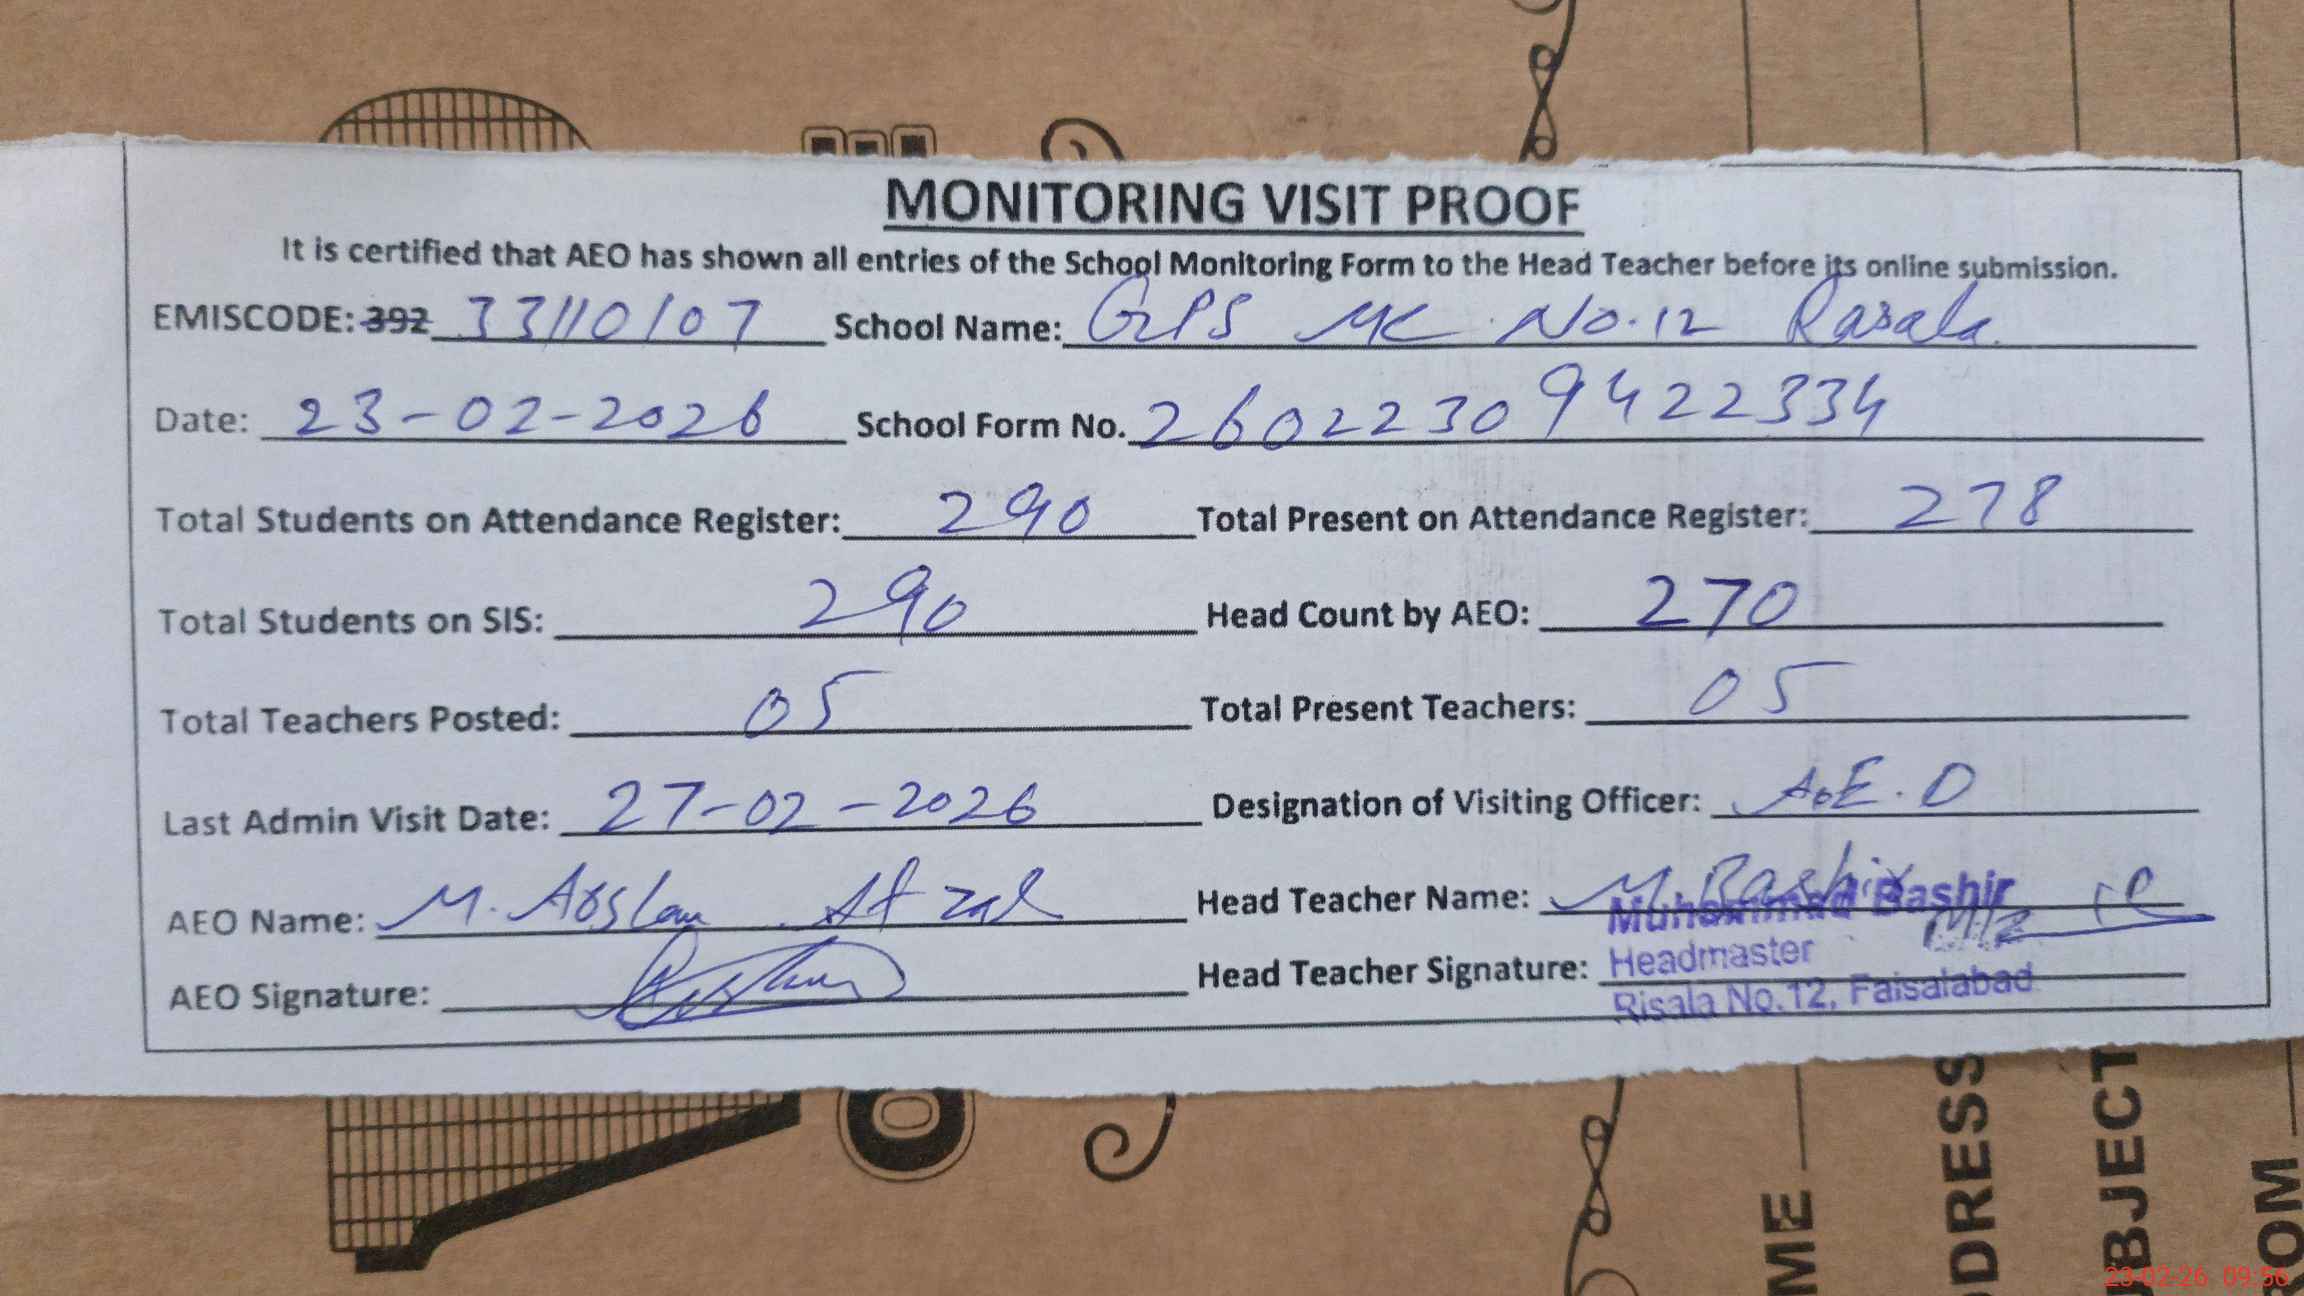 MONITORING VISIT PROOF
It is certified that AEO has shown all entries of the School Monitoring Form to the Head Teacher before its online submission.
EMISCODE: 392 33110107 School Name: GPS MC No.12 Rasala
Date: 23-02-2026 School Form No. 26022309422334
Total Students on Attendance Register: 290 Total Present on Attendance Register: 278
Total Students on SIS: 290 Head Count by AEO: 270
Total Teachers Posted: 05 Total Present Teachers: 05
Last Admin Visit Date: 27-02-2026 Designation of Visiting Officer: A.E.O
AEO Name: M. Arslan Afzal Head Teacher Name: M. Bashir
Muhammad Bashir
AEO Signature: Head Teacher Signature: Headmaster
Risala No.12, Faisalabad
ME
DDRESS
UBJECT
ROM
23-02-26 09:56